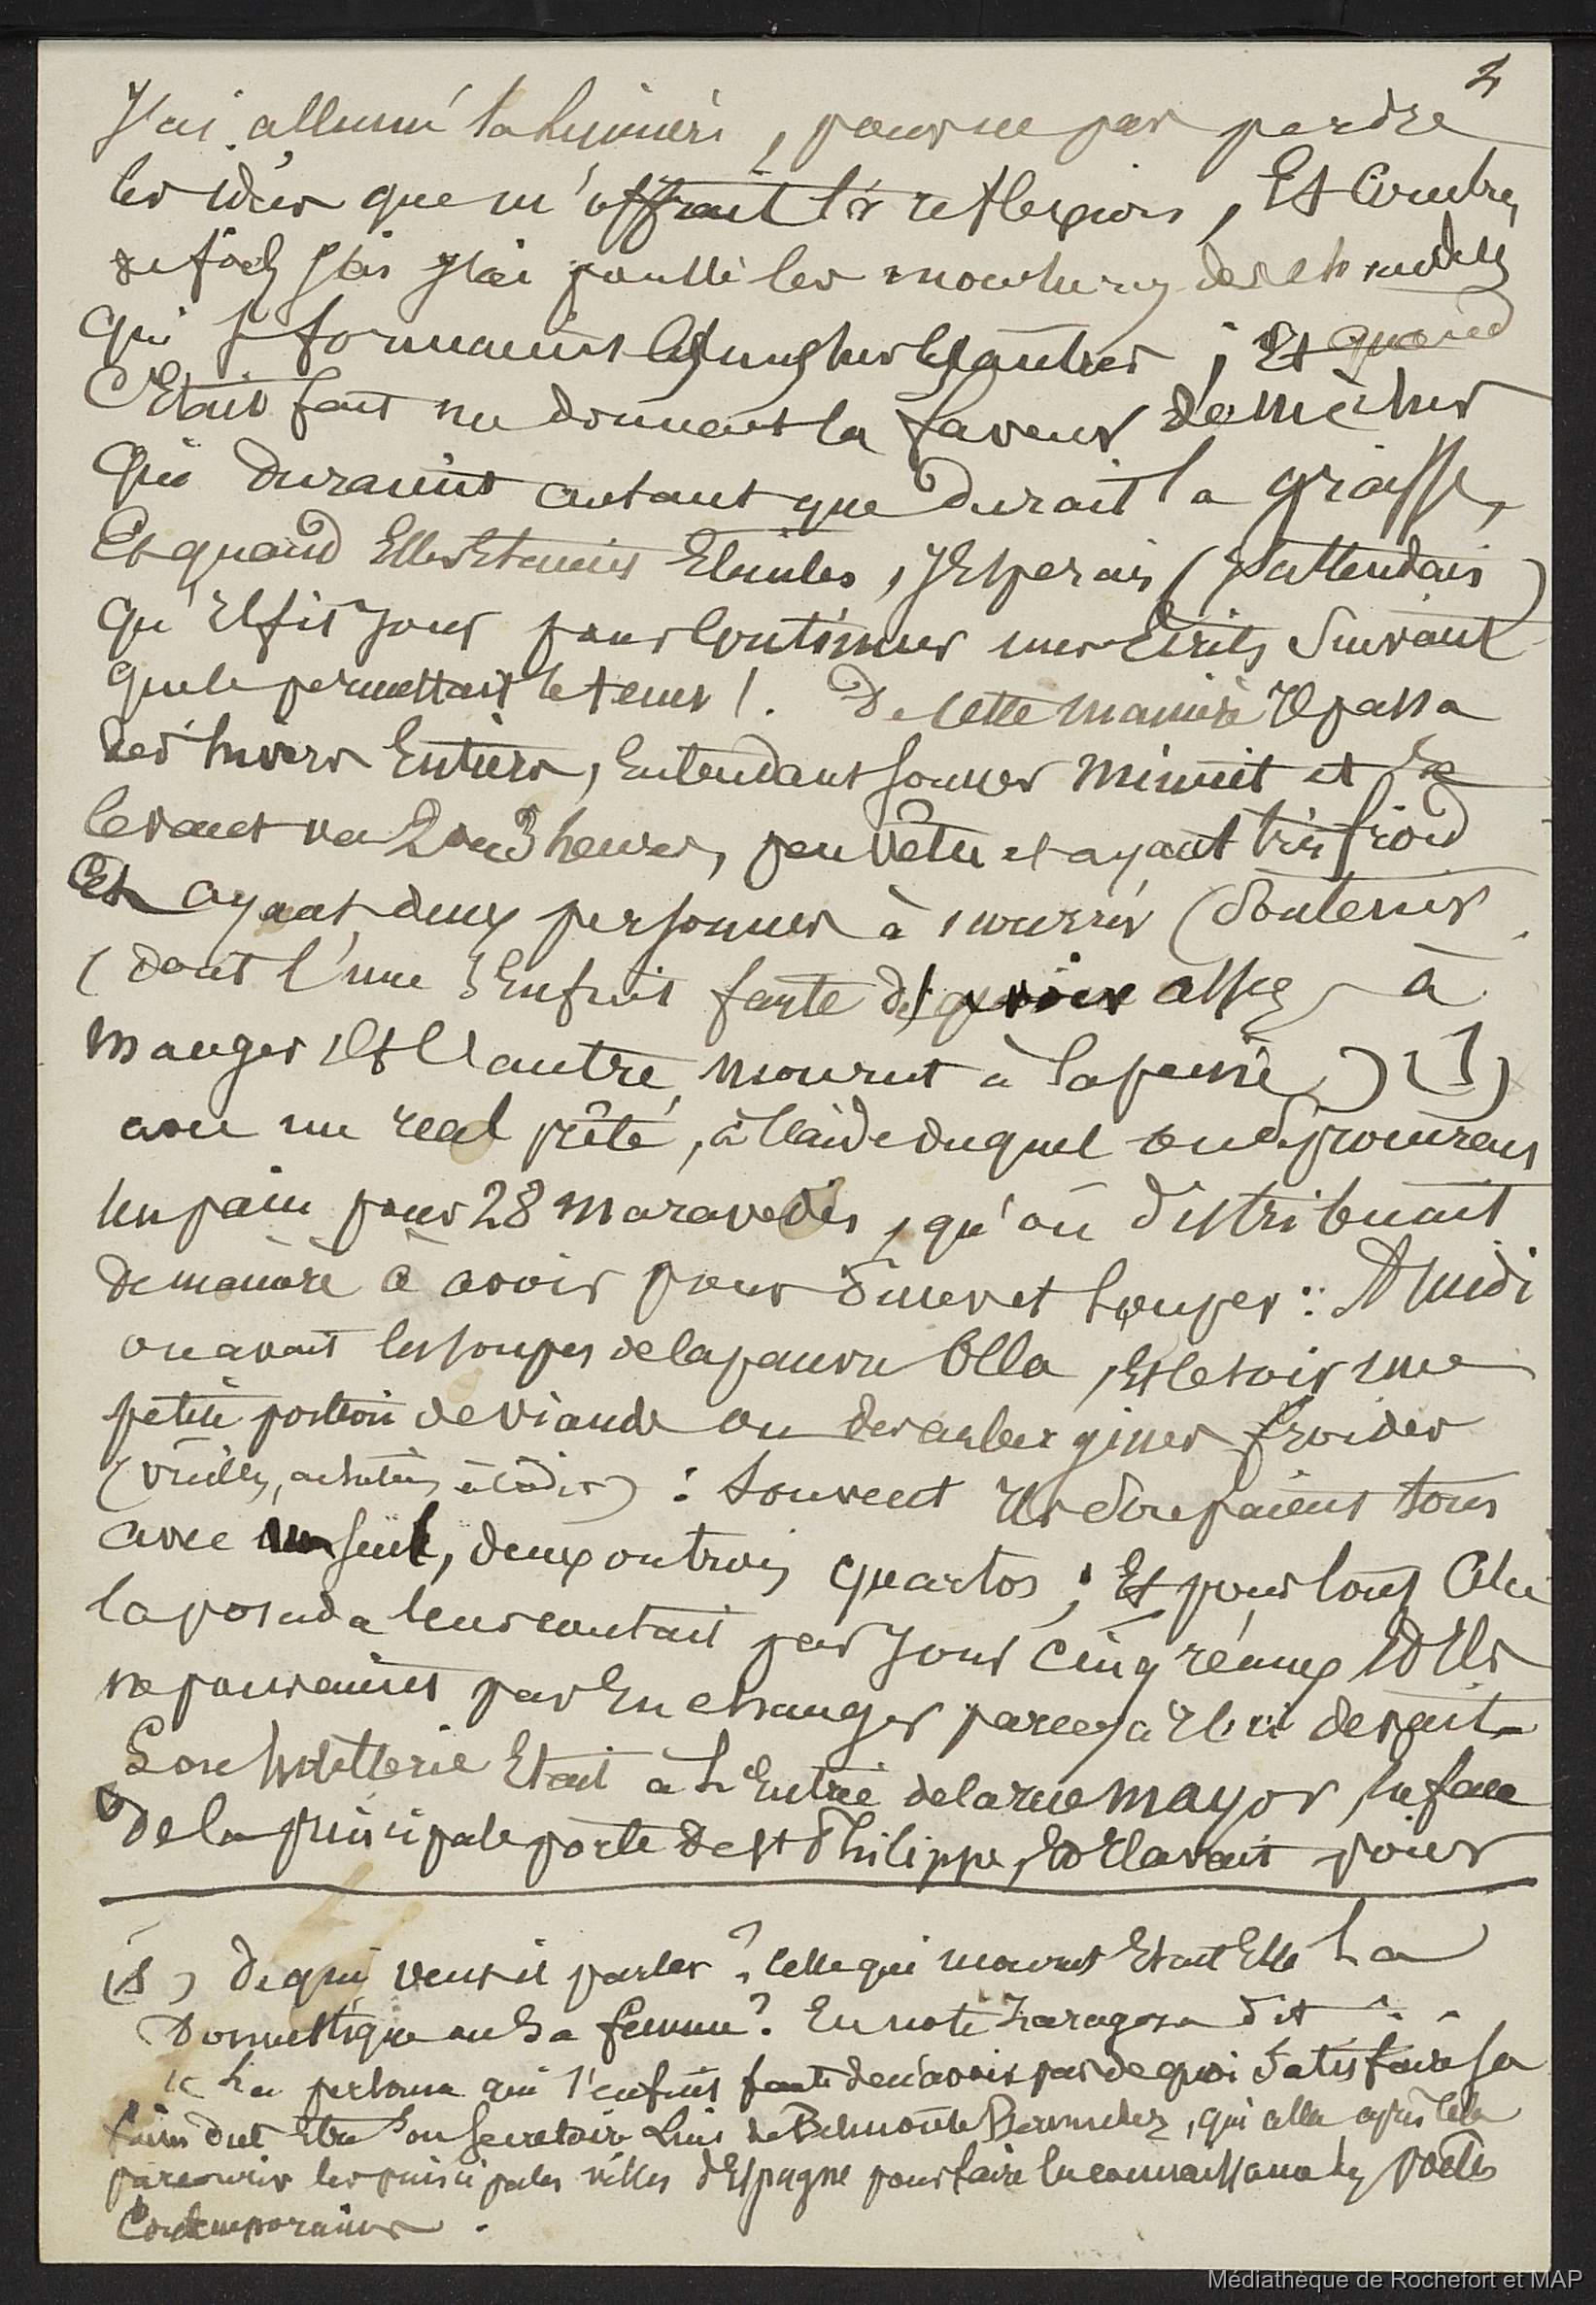 2
J'ai allumé la lumière, pour ne pas perdre
les idées que m'offrait la reflexion, Et Combien
de fois j'ai poussé les mouchures des chandelles
qui se formaient les unes sur les autres ; Et quand
C'Etait fait me donnant la faveur de mèches
Qui duraient autant que durait la graisse,
Et quand Elles Etaient Eteintes, J'Esperais (J'attendais)
Qu'Il fit jour pour Continuer mes Ecrits Suivant
que le permettait le tems !. De cette manière Il passa
des hivers Entiers, Entendant sonner Minuit et se
levant vers 2 ou 3 heures, peu vêtu et ayant très froid
Et ayant deux personnes à nourrir (Soutenir
(dont l'une s'Enfuit faute d'avoir assez à
manger Et l'autre mourut à la peine) (1)
avec un real prêté, à l'aide duquel on se procurait
un pain pour 28 Maravedis, qu'on distribuait
de manière à avoir pour diner et souper : A Midi
on avait les soupes de la pauvre Olla, Et le soir une
petite portion de viande ou des aubergines froides
(vieilles, achetées à
) : Souvent Ils soupaient tous
avec un seul, deux ou trois quartos ; Et pour tout Cela
la posada leur coutait par jour Cinq réaux Et Ils
ne pouvaient pas En changer parce qu'Il y devait
Son hotellerie Etait à L'Entrée de la rue Mayor, En face
de la principale porte de St Philippe, Et Il avait pour
(1) De qui veut il parler ? Celle qui mourut Etait Elle La
Domestique ou Sa femme ? En note Zaragoza dit
" La personne qui s'enfuit faute de n'avoir pas de quoi Satisfaire sa
faim dut Etre Son Secretaire Luis de Belmonte Bermudez, qui alla après Cela
parcourir les principales villes d'Espagne pour faire la connaissance des poëtes
Contemporains.
Médiathèque de Rochefort et MAP